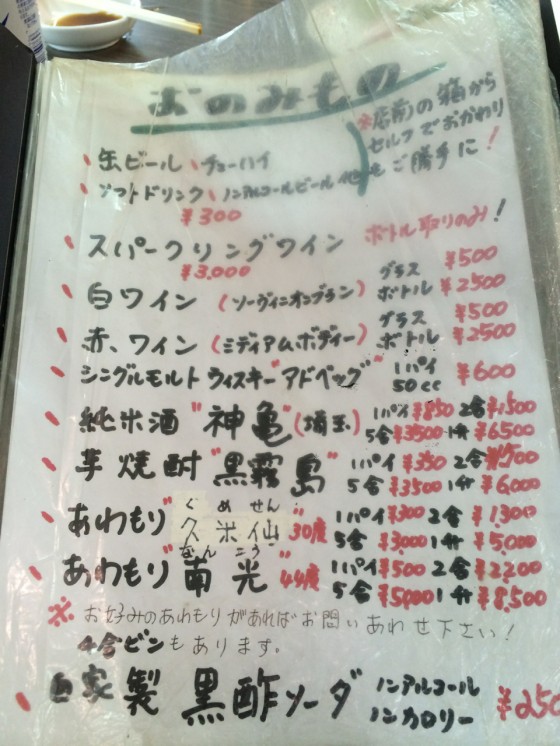 おのみもの
※店前の箱から
セルフでおかわり
もご勝手に!
缶ビール、チューハイ
ソフトドリンク、ノンアルコールビール他
¥300
スパークリングワイン ボトル取りのみ!
¥3,000
白ワイン (ソーヴィニオンブラン) グラス ¥500
ボトル ¥2500
赤、ワイン (ミディアムボディー) グラス ¥500
ボトル ¥2500
シングルモルトウィスキー"アドベッグ" 1パイ 50cc ¥600
純米酒 "神亀" (埼玉) 1パイ ¥850 2合 ¥1,500
5合 ¥3500 1升 ¥6500
芋焼酎 "黒霧島" 1パイ ¥350 2合
5合 ¥3500 1升 ¥6,000
あわもり"久米仙" 30度 1パイ ¥300 2合 ¥1,300
くめせん
5合 ¥3,000 1升 ¥5,000
あわもり"南光" 44度 1パイ ¥500 2合 ¥2,200
なんこう
5合 ¥5,000 1升 ¥8,500
※お好みのあわもりがあればお問いあわせ下さい!
4合ビンもあります。
自家製 黒酢ソーダ ノンアルコール
ノンカロリー ¥250